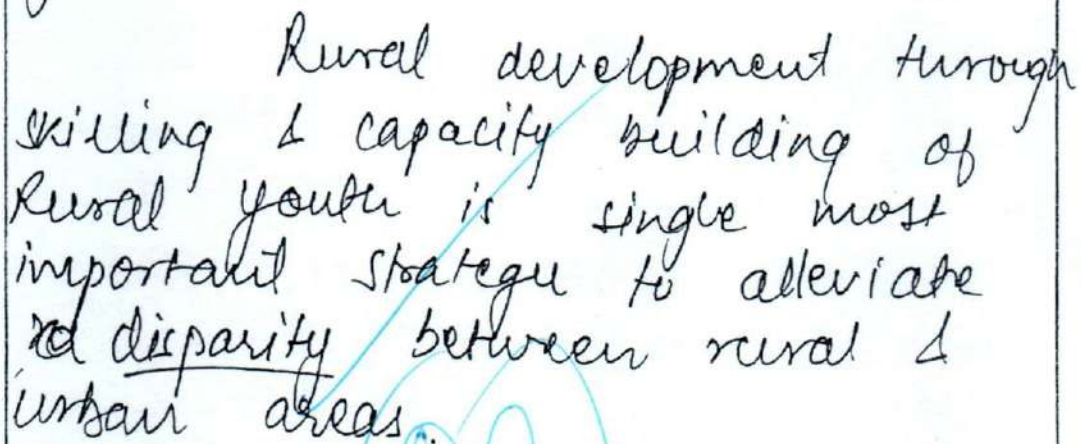 Rural development through
skilling & capacity building of
Rural youth is single most
important strategy to alleviate
disparity between rural &
urban areas.